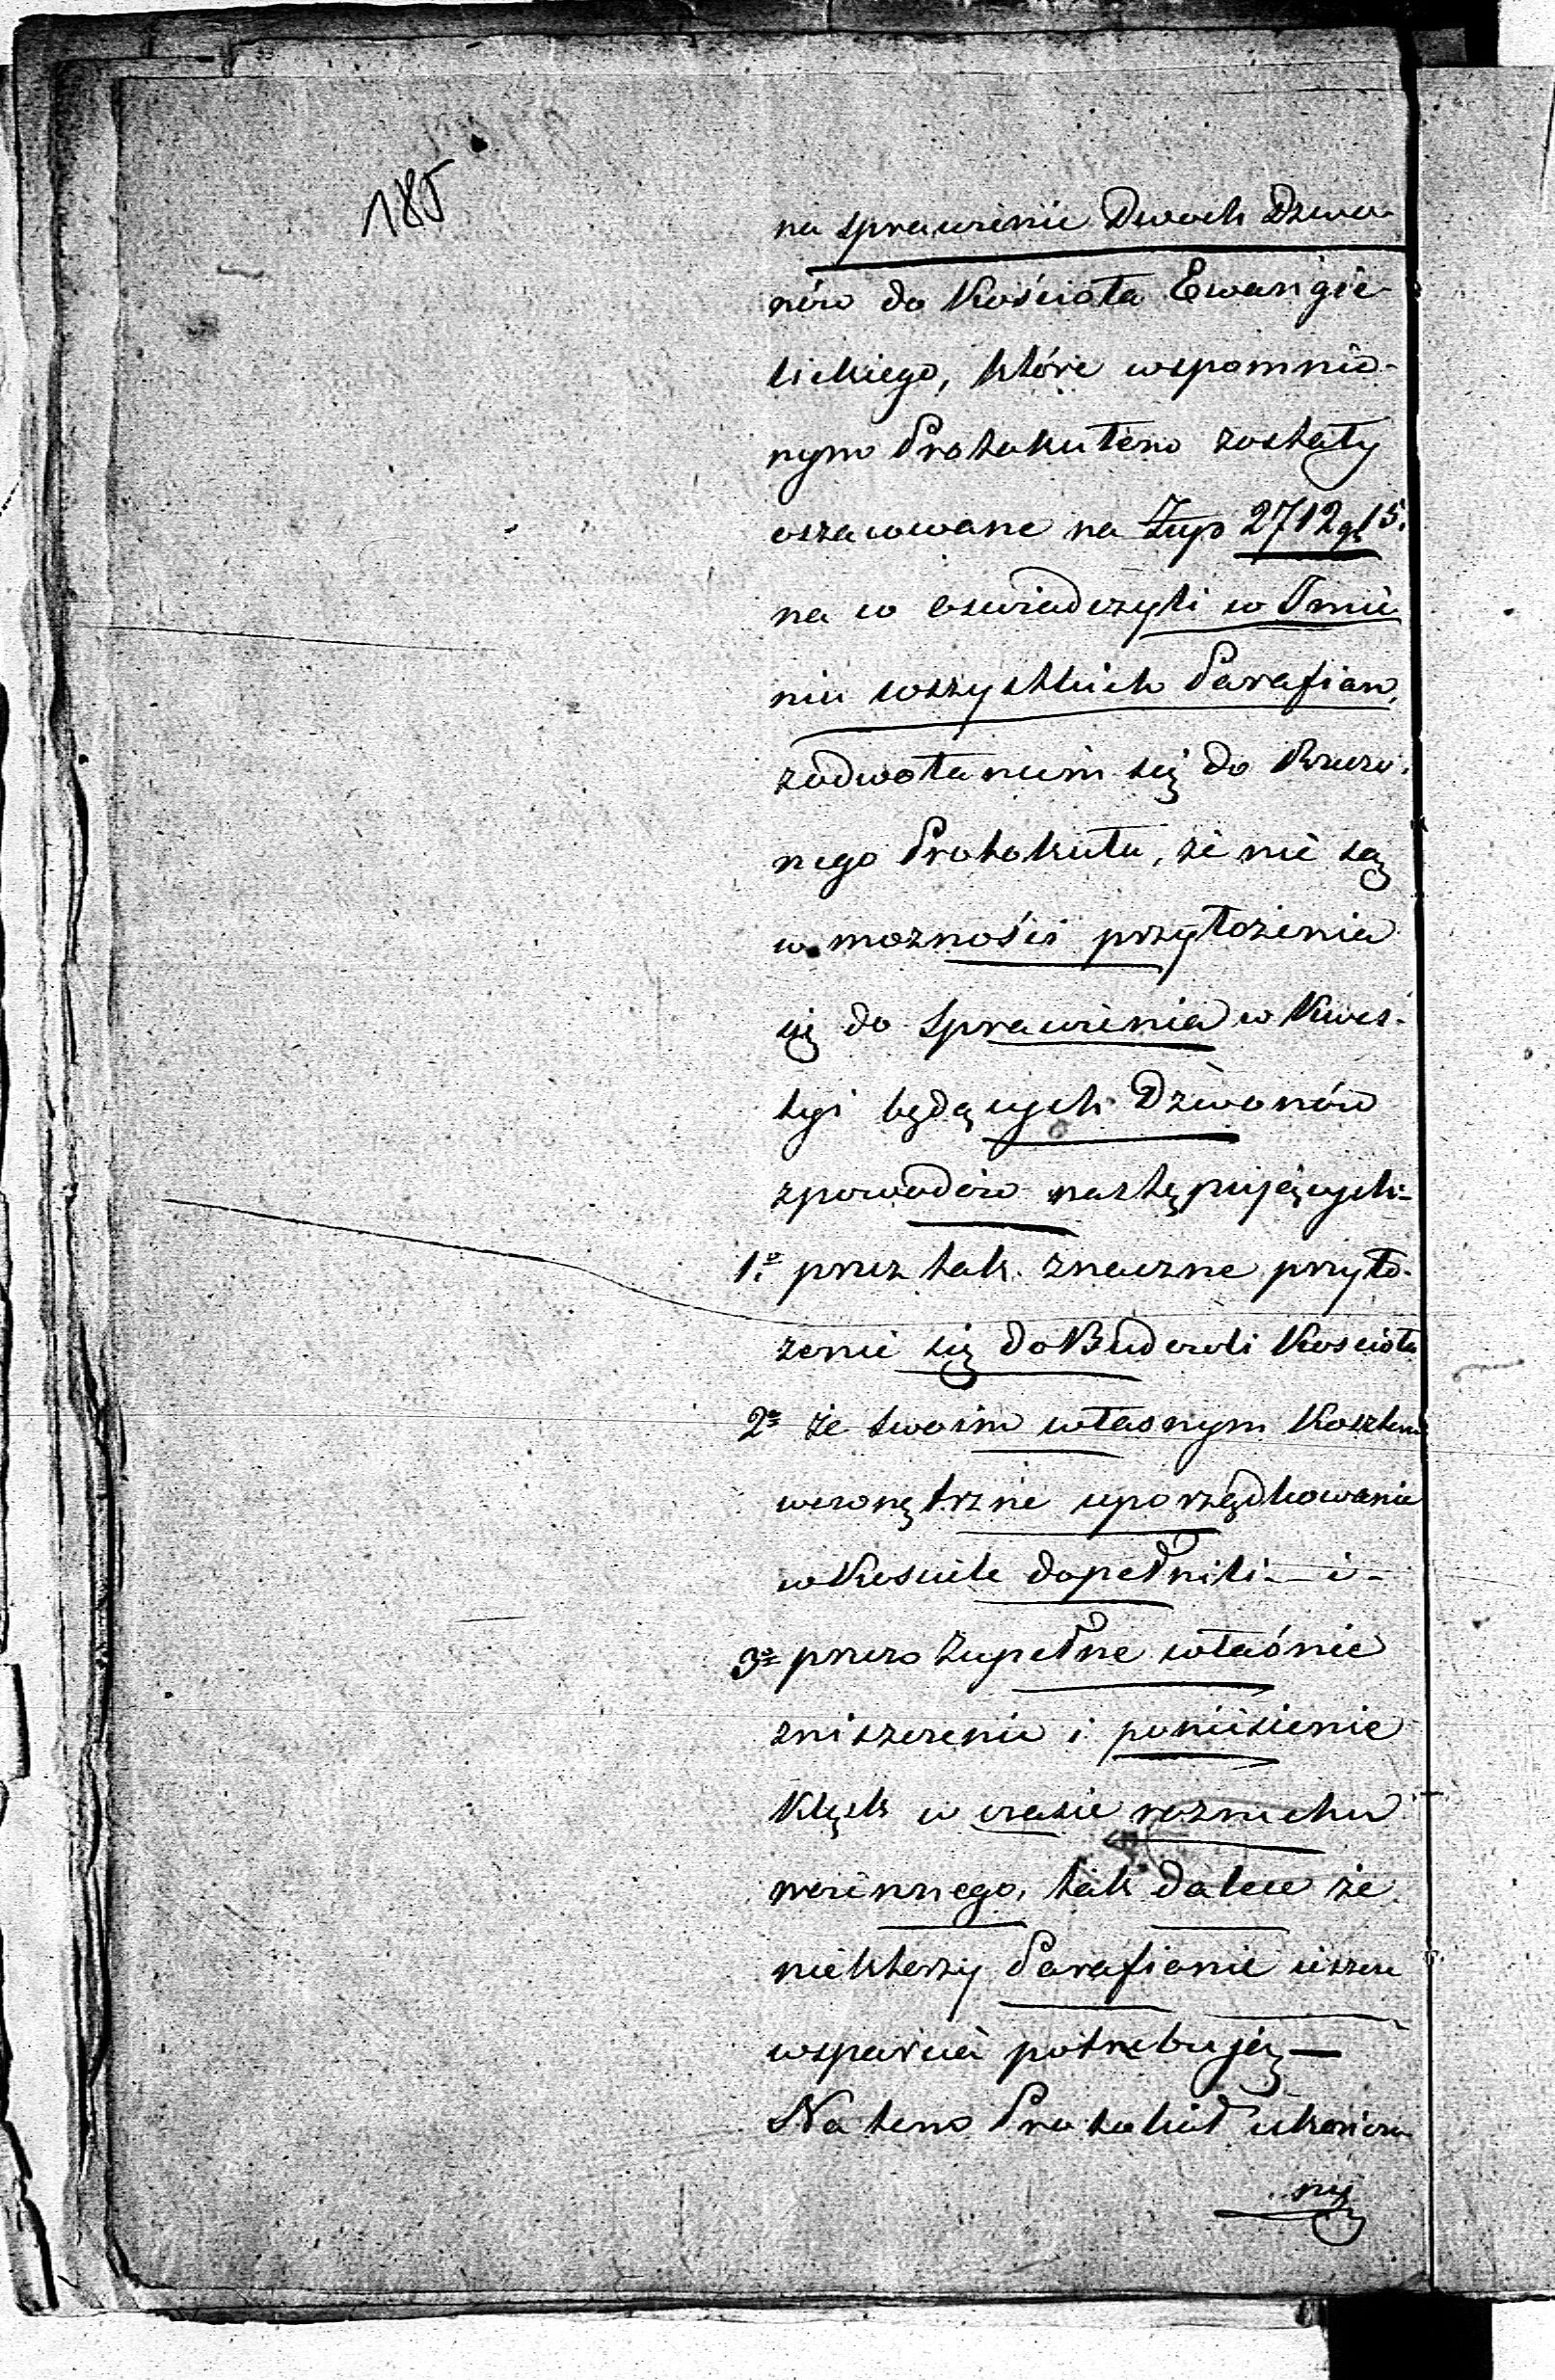 185
na sprawienie Dwoch Dzwo-
nów do Kościoła Ewangie-
lickiego, które wspomnio-
nym Protokułem zostały
oszacowane na Złp 2712 gr 15.
na w oswiadczyli w Imie
niu wszystkich Parafian,
zodwołaniem się do Rzeczo-
nego Protokułu, że nie są
w możności przyłożenia
się do sprawienia w Kwes-
tyi będących Dzwonów
zpowodów następujących-
1o przez tak znaczne przyło-
żenie się do Budowli Kościoła
2o że swoim własnym Kosztem
wewnętrzne uporządkowanie
w Kosciele dopełnili - i -
3o przez zupełne właśnie
zniszczenie i poniesienie
Klęsk w czasie rozruchu
wojennego, tak dalece że
niektorzy Parafianie ieszcze
wsparcia potrzebują —
Na tem Protokuł ukończo
ny